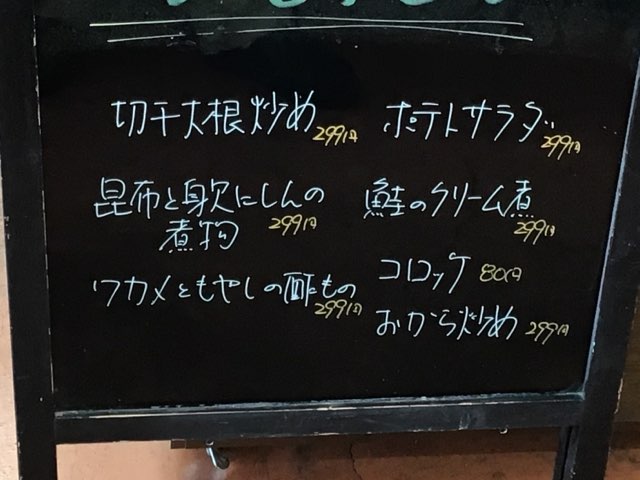 切干大根炒め 299円
昆布と身欠にしんの
煮物 299円
ワカメともやしの酢もの
299円
ポテトサラダ 299円
鮭のクリーム煮
299円
コロッケ 80円
おから炒め 299円